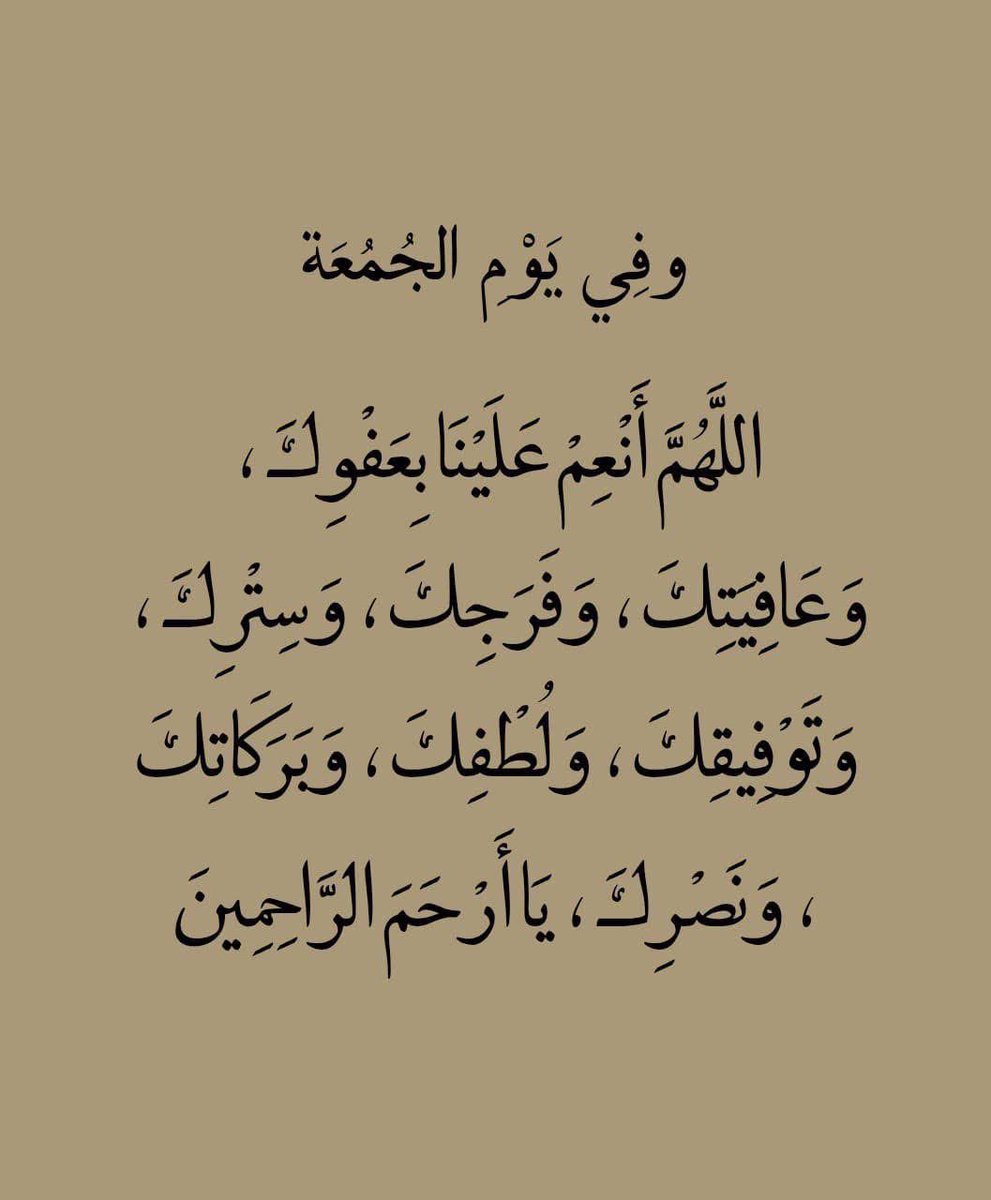 وفِي يَوْمِ الجُمُعَة
اللَّهُمَّ أَنْعِمْ عَلَيْنَا بِعَفْوِكَ ،
وَعَافِيَتِكَ ، وَفَرَجِكَ ، وَسِتْرِكَ ،
وَتَوْفِيقِكَ ، وَلُطْفِكَ ، وَبَرَكَاتِكَ
، وَنَصْرِكَ ، يَا أَرْحَمَ الرَّاحِمِينَ